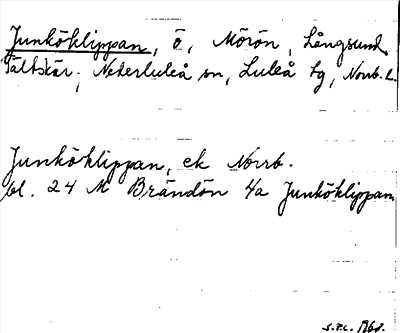 Junköklippan, ö, Mörön, Långsund.
Tältskär; Nederluleå sn, Luleå tg, Norrb. l.
Junköklippan, ek Norrb.
bl. 24 M Brändön 4a Junköklippan
S.F.L. 1960.